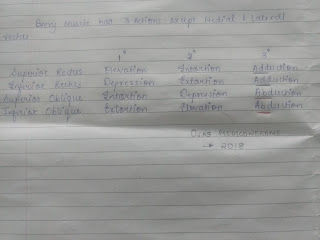 Every muscle has 3 actions except Medial & Lateral
rectus
1° 2° 3°
Superior Rectus Elevation Intortion Adduction
Inferior Rectus Depression Extortion Adduction
Superior Oblique Intortion Depression Abduction
Inferior Oblique Extortion Elevation Abduction
MEDICOWESOME
→ 2018